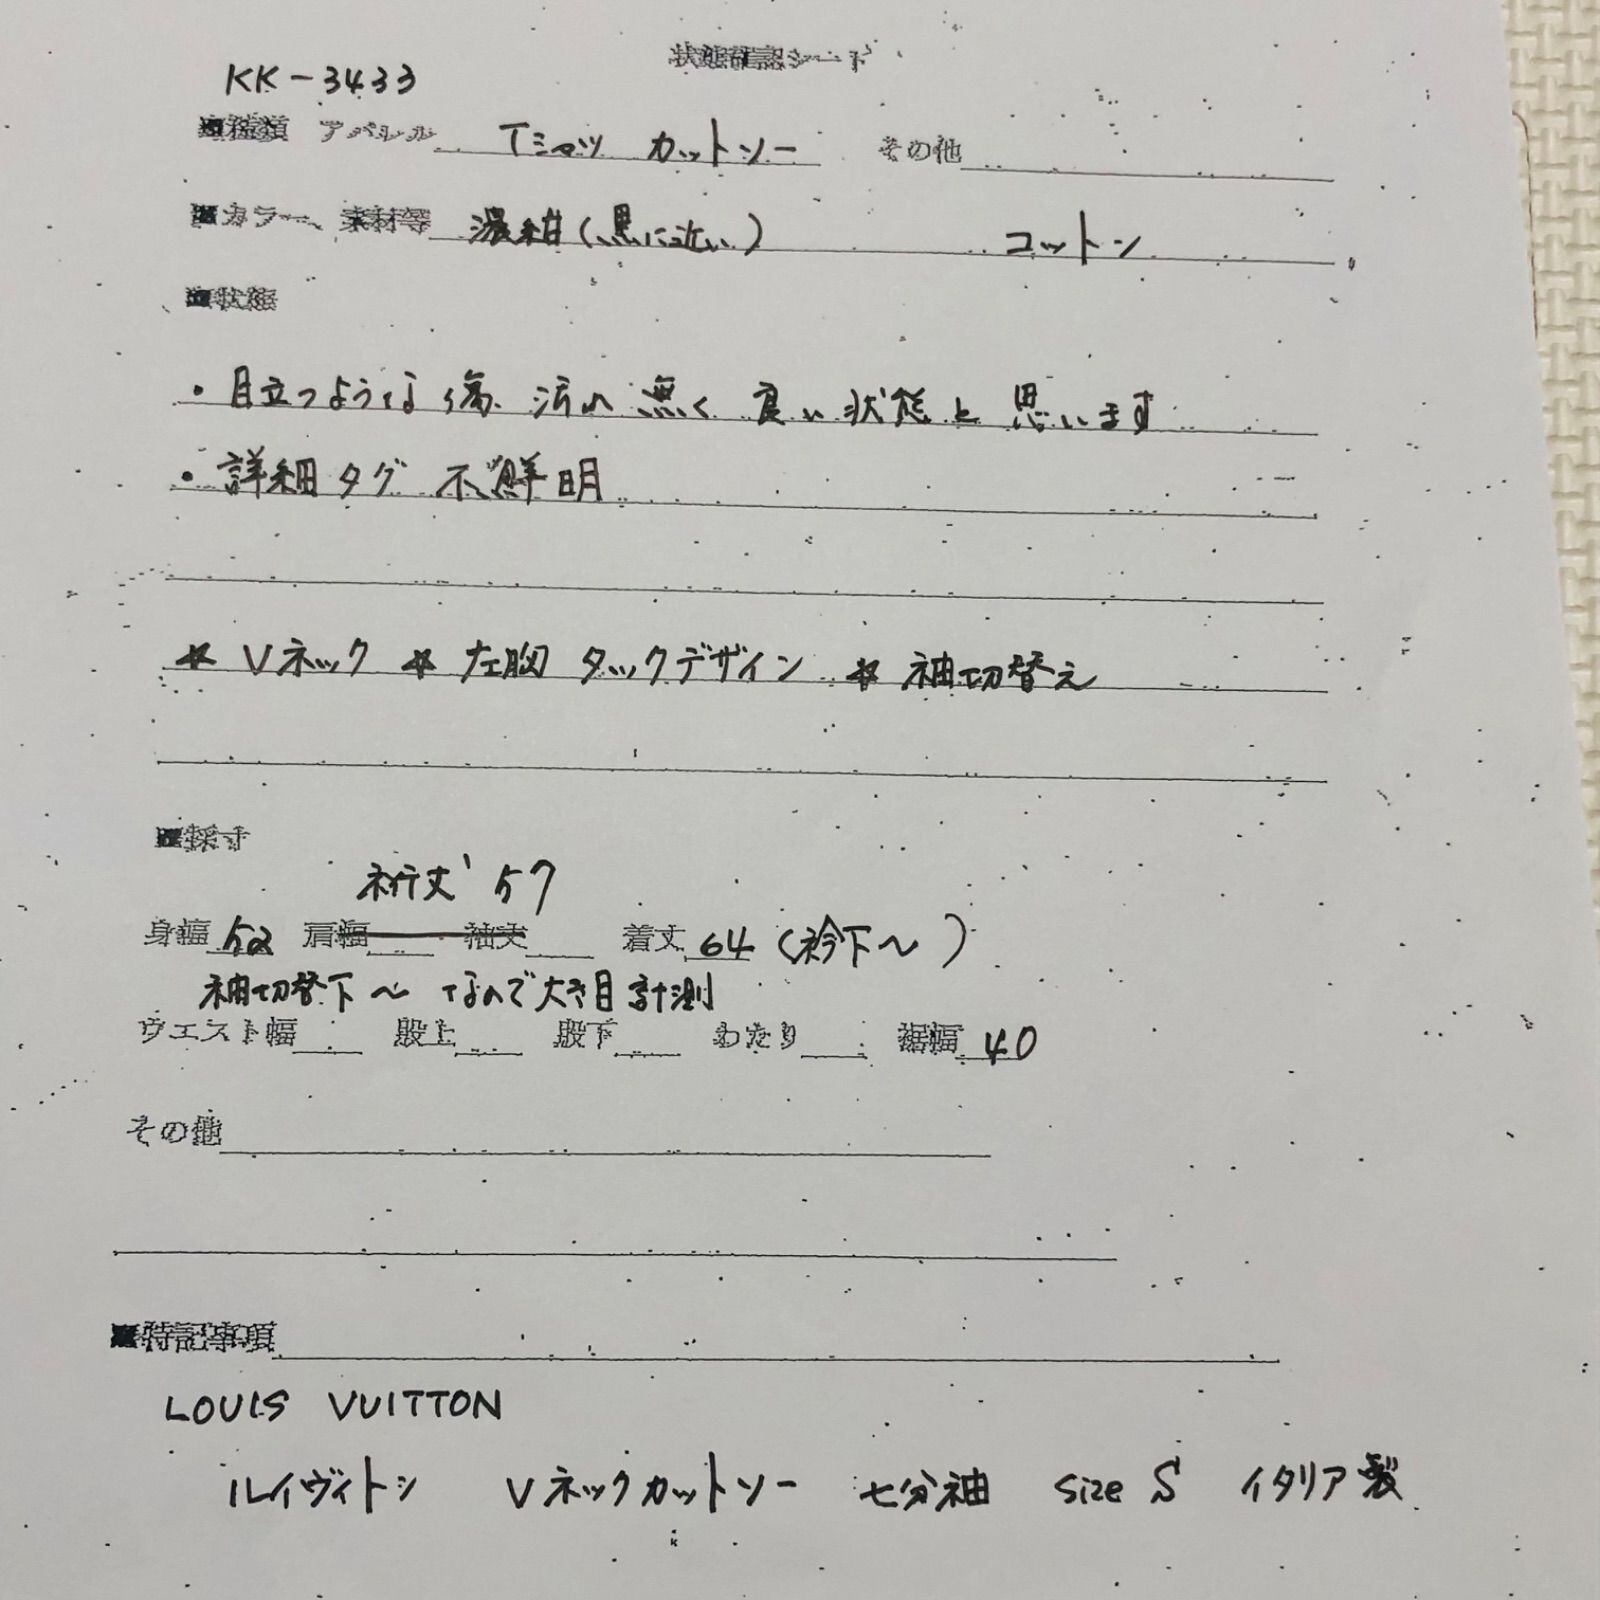 状態確認シート
KK-3433
■種類 アパレル Tシャツ カットソー その他
■カラー、素材等 濃紺(黒に近い) コットン
■状態
・目立つような傷、汚れ 無く 良い状態と思います
・詳細タグ 不鮮明
* Vネック * 左胸 タックデザイン * 袖切替え
■採寸
裄丈 57
身幅 52 肩幅 袖丈 着丈 64 (衿下〜)
袖切替下〜なので大き目計測
ウエスト幅 股上 股下 わたり 裾幅 40
その他
■特記事項
LOUIS VUITTON
ルイヴィトン Vネックカットソー 七分袖 Size S イタリア製